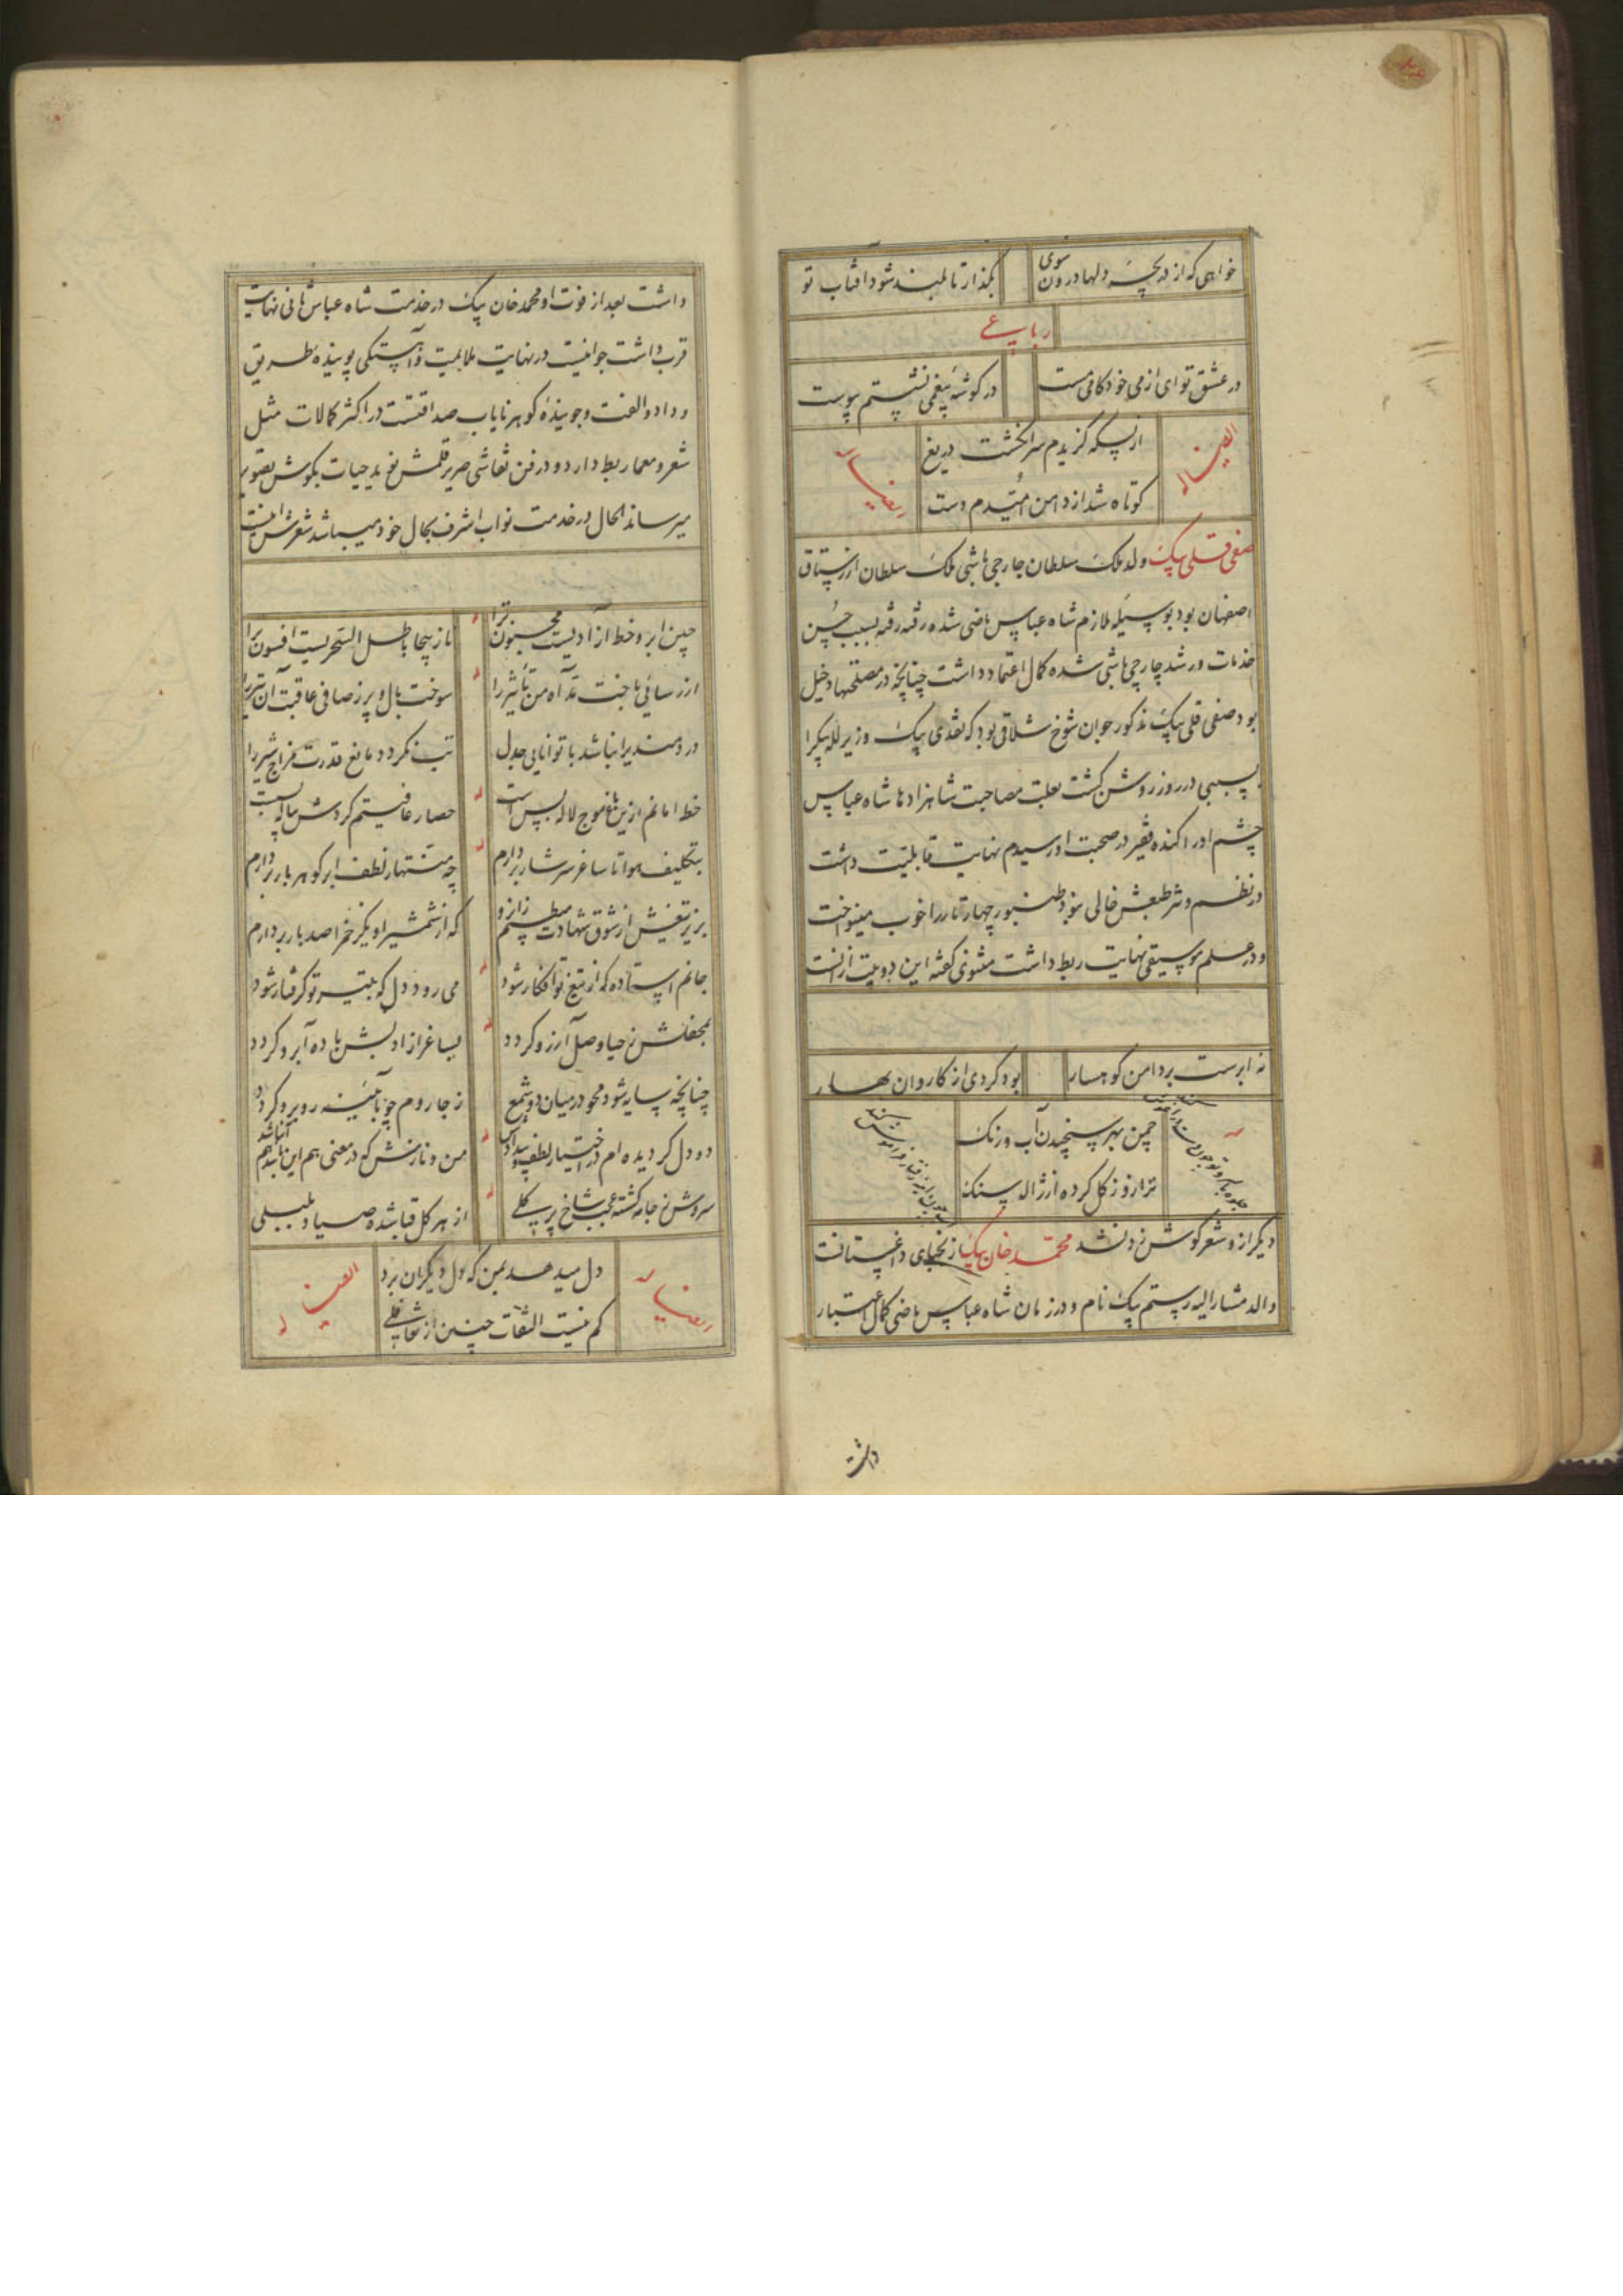 خواهی که از دریچهٔ دلها درون سوی
بگذار تا بلند شود آفتاب تو
رباعی
در عشق تو ای از می خودکامی مست
در گوشهٔ بیغمی نشستم پیوست
از بسکه گزیدم سر انگشت دریغ
کوتاه شد از دامن امیدم دست
ایضاً له
ایضاً له
صفی قلی بیک ولد ملک سلطان جارچی باشی ملک سلطان از رستاق
اصفهان بود بوسیله ملازم شاه عباس ماضی شده رفته رفته بسبب حسن
خدمات و رشد جارچی باشی شده کمال اعتماد داشت چنانچه در مصلحتها دخیل
بود صفی قلی بیک مذکور جوان شوخ شلاقی بود که نقدی بیک وزیر لله بیک را
بسببی در روز روشن کشت بعلت مصاحبت شاهزادها شاه عباس
چشم او را کنده فقیر در صحبت او رسیدم نهایت قابلیت داشت
در نظم و نثر طبعش خالی نبود طنبور چهارتار را خوب مینواخت
و در علم موسیقی نهایت ربط داشت مثنوی گفته این دو بیت از آنست
نه ابرست بر دامن کوهسار
بود گردی از کاروان بهار
چمن بهر سنجیدن آب و رنگ
ترازو ز گل کرده از ژاله سنگ
دیگر ازو شعر گوش زد نشد محمد خان بیک از نجبای داغستانست
والد مشارالیه رستم بیک نام و در زمان شاه عباس ماضی کمال اعتبار
داشت
داشت بعد از فوت او محمد خان بیک در خدمت شاه عباس ثانی نهایت
قرب داشت جوانیست در نهایت ملایمت و آهستگی پوینده طریق
وداد و الفت و جوینده گوهر نایاب صداقتست در اکثر کمالات مثل
شعر و معما ربط دارد و در فن نقاشی صریر قلمش نوید حیات بگوش تصویر
میرساند الحال در خدمت نواب اشرف بحال خود میباشد شعرش اینست
چین ابرو خط آزادیست مجنون ترا
ناز بیجا باطل السحریست افسون ترا
نارسائی باخت مد آه من تأثیر را
سوخت بال و پر ز صافی عاقبت آن تیر را
دردمندی را نباشد با توانایی جدل
تب نگردد مانع قدرت مزاج شیر را
خط امانم ازین باغ موج لاله بس است
حصار عافیتم گردش پیاله بست
بتکلیف هوا تا ساغر سرشار بردارم
چه منتها ز لطف ابر گوهر بار بردارم
بزیر تیغش از شوق شهادت میطپم زانرو
که از شمشیر او یک زخم را صد بار بردارم
جانم ایستاده که از تیغ تو افکار شود
می رود دل که بتیر تو گرفتار شود
بمحفلش ز حیا وصل آرزو گردد
بساغر از ادبش باده آبرو گردد
چنانچه سایه شود محو در میان دو شمع
ز جا روم چو بآئینه روبرو گردد
دو دل گردیده ام در اختیار لطف و بیدادش
سروش ز جامه گشته عجب شاخ پر گلی
از هر گل قبا شده صیاد بلبلی
دل میدهد بمن که دل دیگران برد
کم نیست التفات چنین از تغافلی
ایضاً له
ایضاً له